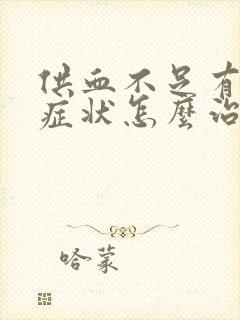 供血不足有
症状怎麼治
哈蒙